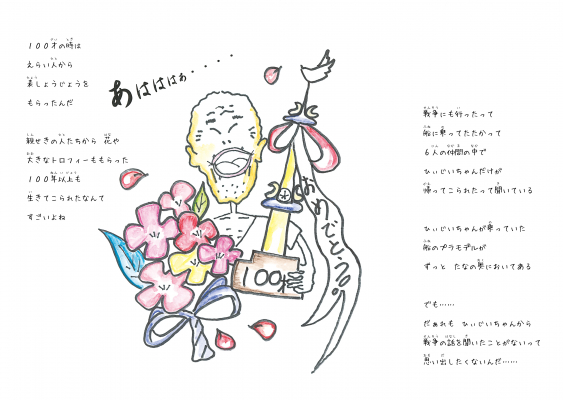 100才の時は
えらい人から
表しょうじょうを
もらったんだ
親せきの人たちから 花や
大きなトロフィーももらった
100年以上も
生きてこられたなんて
すごいよね
あはははぁ・・・・
おめでとう
100歳
戦争にも行ったって
船に乗ってたたかって
6人の仲間の中で
ひいじいちゃんだけが
帰ってこられたって聞いている
ひいじいちゃんが乗っていた
船のプラモデルが
ずっと たなの奥においてある
でも……
だぁれも ひいじいちゃんから
戦争の話を聞いたことがないって
思い出したくないんだ……